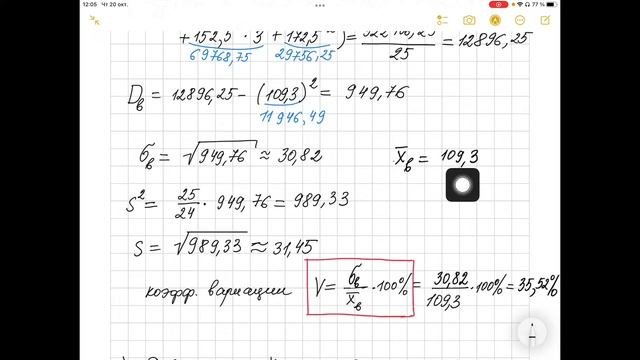 12:05 Чт 20 окт. 77 %
+152,5 · 3 + 172,5 ) = = 12896,25
69768,75 29756,25 25
D_в = 12896,25 - (109,3)² = 949,76
11 946,49
σ_в = √949,76 ≈ 30,82 x̄_в = 109,3
S² = 25/24 · 949,76 = 989,33
S = √989,33 ≈ 31,45
коэфф. вариации V = σ_в/x̄_в · 100% = 30,82/109,3 · 100% = 35,52%